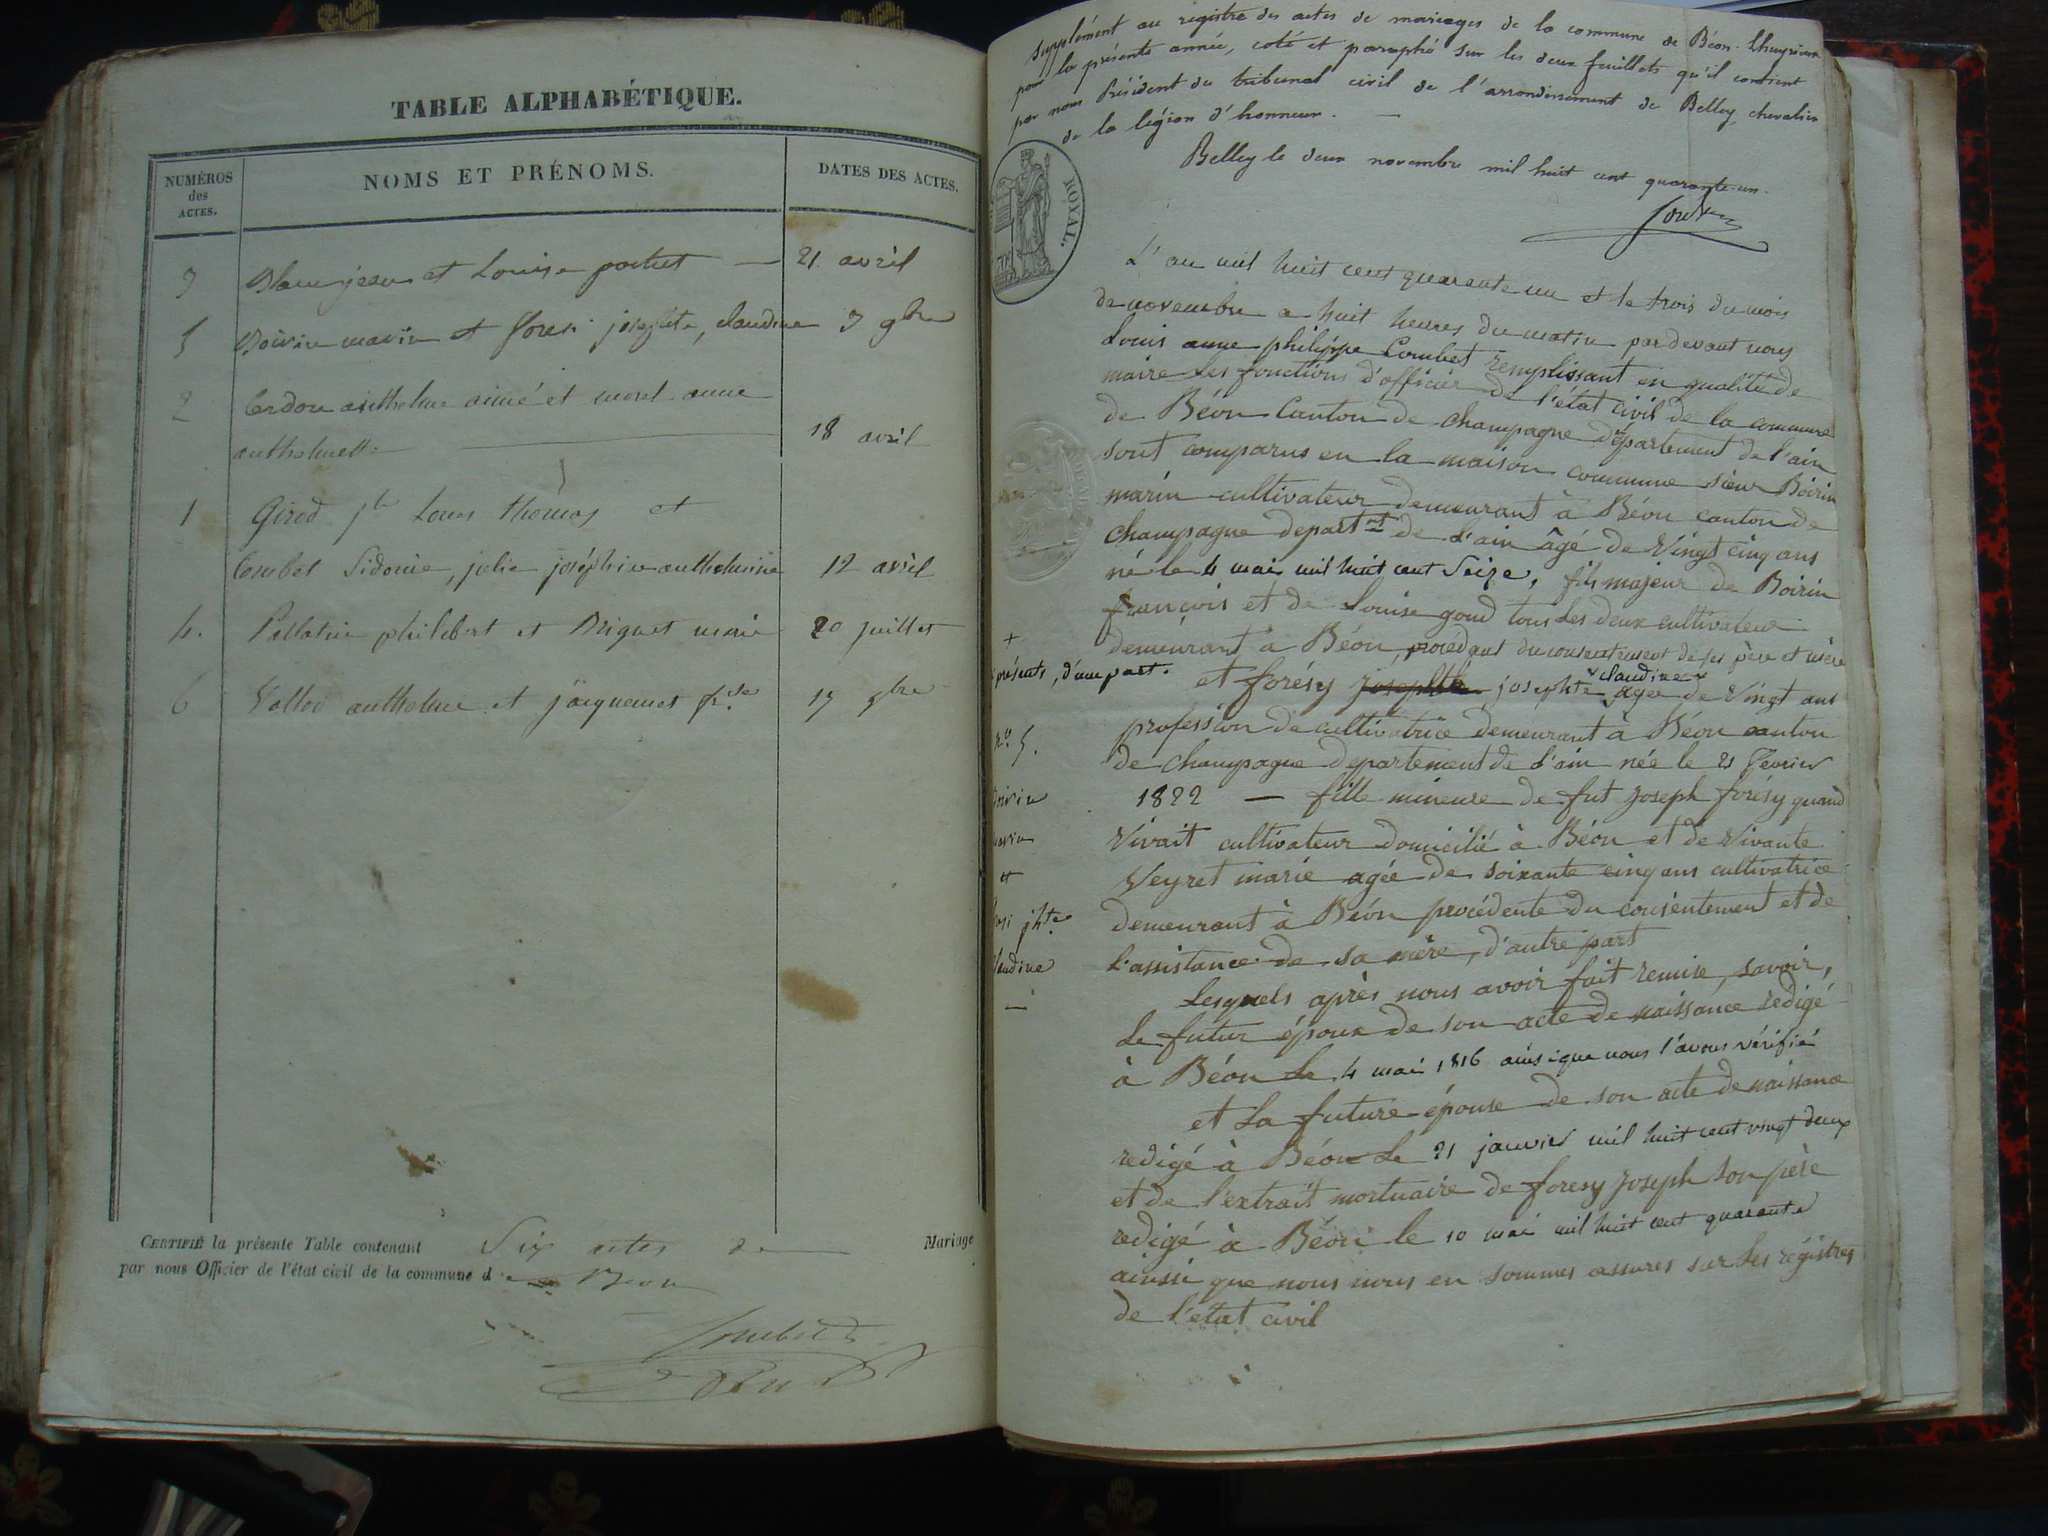 TABLE ALPHABÉTIQUE.
NUMÉROS
des
ACTES.
NOMS ET PRÉNOMS.
DATES DES ACTES.
3 Blanc jean et Louise portut — 21 avril
5 Boirin marin et foresi josephte, claudine 3 9bre
2 Cordon anthelme aimé et morel anne
anthelmette — 18 avril
1 Girod jh Louis thomas et
Combet Sidonie, julie joséphine anthelmine 12 avril
4. Pellatin philibert et Briguet marie 20 juillet
6 Vallod anthelme et jacquemet 17 9bre
CERTIFIÉ la présente Table contenant Six actes de Mariage
par nous Officier de l'état civil de la commune de Beon
Combet
supplément au registre des actes de mariages de la commune de Béon-Lhuyrieux
pour la présente année, coté et paraphé sur les deux feuillets qu'il contient
par nous Président du tribunal civil de l'arrondissement de Belley, chevalier
de la légion d'honneur. —
Belley le deux novembre mil huit cent quarante-un.
ROYAL.
L'an mil huit cent quarante un et le trois du mois
de novembre a huit heures du matin par devant nous
Louis anne philippe Combet remplissant en qualité de
maire les fonctions d'officier de l'état civil de la commune
de Béon Canton de champagne département de l'ain
sont comparus en la maison commune sieur Boirin
marin cultivateur demeurant à Béon canton de
champagne departmt de l'ain âgé de Vingt cinq ans
né le 4 mai mil huit cent Seize, fils majeur de Boirin
françois et de Louise goud tous les deux cultivateur
demeurant à Béon, procedant du consentement de ses père et mère
+
présents, d'une part.
et forésy josephte josephte claudine agée de Vingt ans
profession de cultivatrice demeurant à Béon canton
no. 5.
de champagne departement de l'ain née le 21 février
1822 — fille mineure de fut Joseph forésy quand
Boirin
marin
et
foresi jhte
claudine
—
Vivait cultivateur domicilié à Béon et de Vivante
Veyret marie agée de soixante cinq ans cultivatrice
demeurant à Béon procédente du consentement et de
l'assistance de sa mère, d'autre part
Lesquels après nous avoir fait remise, savoir,
Le futur époux de son acte de naissance rédigé
à Béon le 4 mai 1816 ainsi que nous l'avons vérifié
et La future épouse de son acte de naissance
redigé à Béon le 21 janvier mil huit cent vingt deux
et de l'extrait mortuaire de foresy Joseph son père
redigé à Béon le 10 mai mil huit cent quarante
ainsi que nous nous en sommes assures sur les régistres
de l'état civil